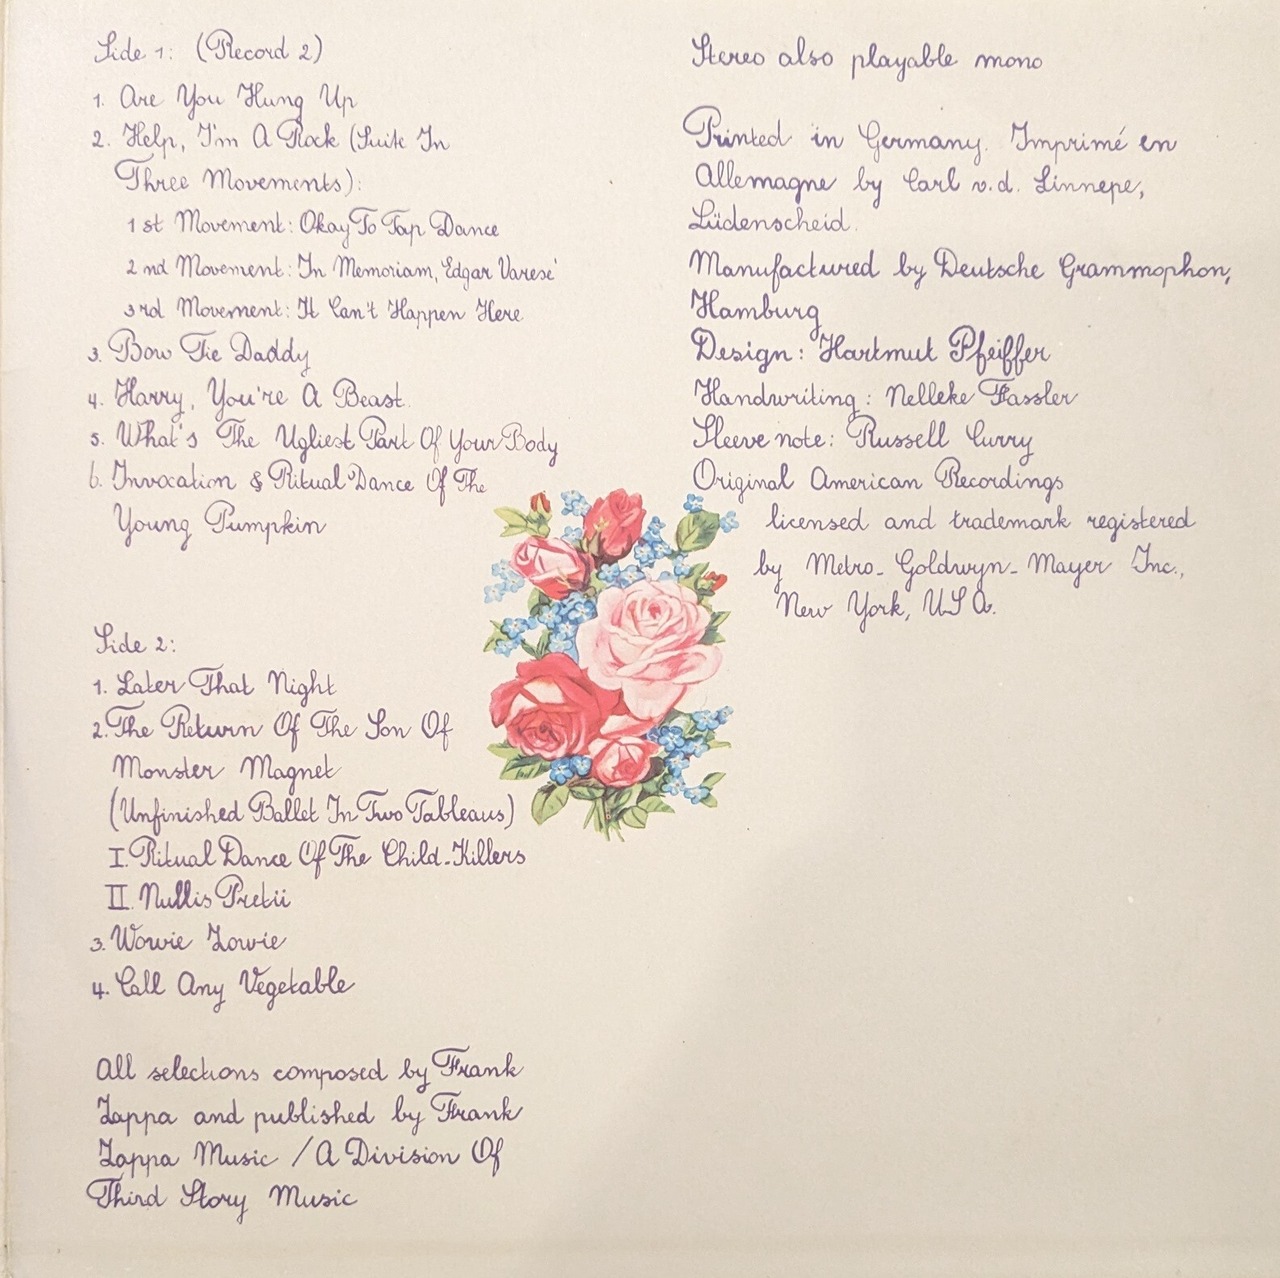 Side 1: (Record 2)
1. Are You Hung Up
2. Help, I'm A Rock (Suite In
Three Movements):
1st Movement: Okay To Tap Dance
2nd Movement: In Memoriam, Edgar Varese'
3rd Movement: It Can't Happen Here
3. Bow Tie Daddy
4. Harry, You're A Beast.
5. What's The Ugliest Part Of Your Body
6. Invocation & Ritual Dance Of The
Young Pumpkin
Side 2:
1. Later That Night
2. The Return Of The Son Of
Monster Magnet
(Unfinished Ballet In Two Tableaus)
I. Ritual Dance Of The Child-Killers
II. Nullis Pretii
3. Wowie Zowie
4. Call Any Vegetable
All selections composed by Frank
Zappa and published by Frank
Zappa Music / A Division Of
Third Story Music
Stereo also playable mono
Printed in Germany. Imprimé en
Allemagne by Carl v.d. Linnepe,
Lüdenscheid.
Manufactured by Deutsche Grammophon,
Hamburg
Design: Hartmut Pfeiffer
Handwriting: Nelleke Fassler
Sleeve note: Russell Curry
Original American Recordings
licensed and trademark registered
by Metro-Goldwyn-Mayer Inc.,
New York, USA.